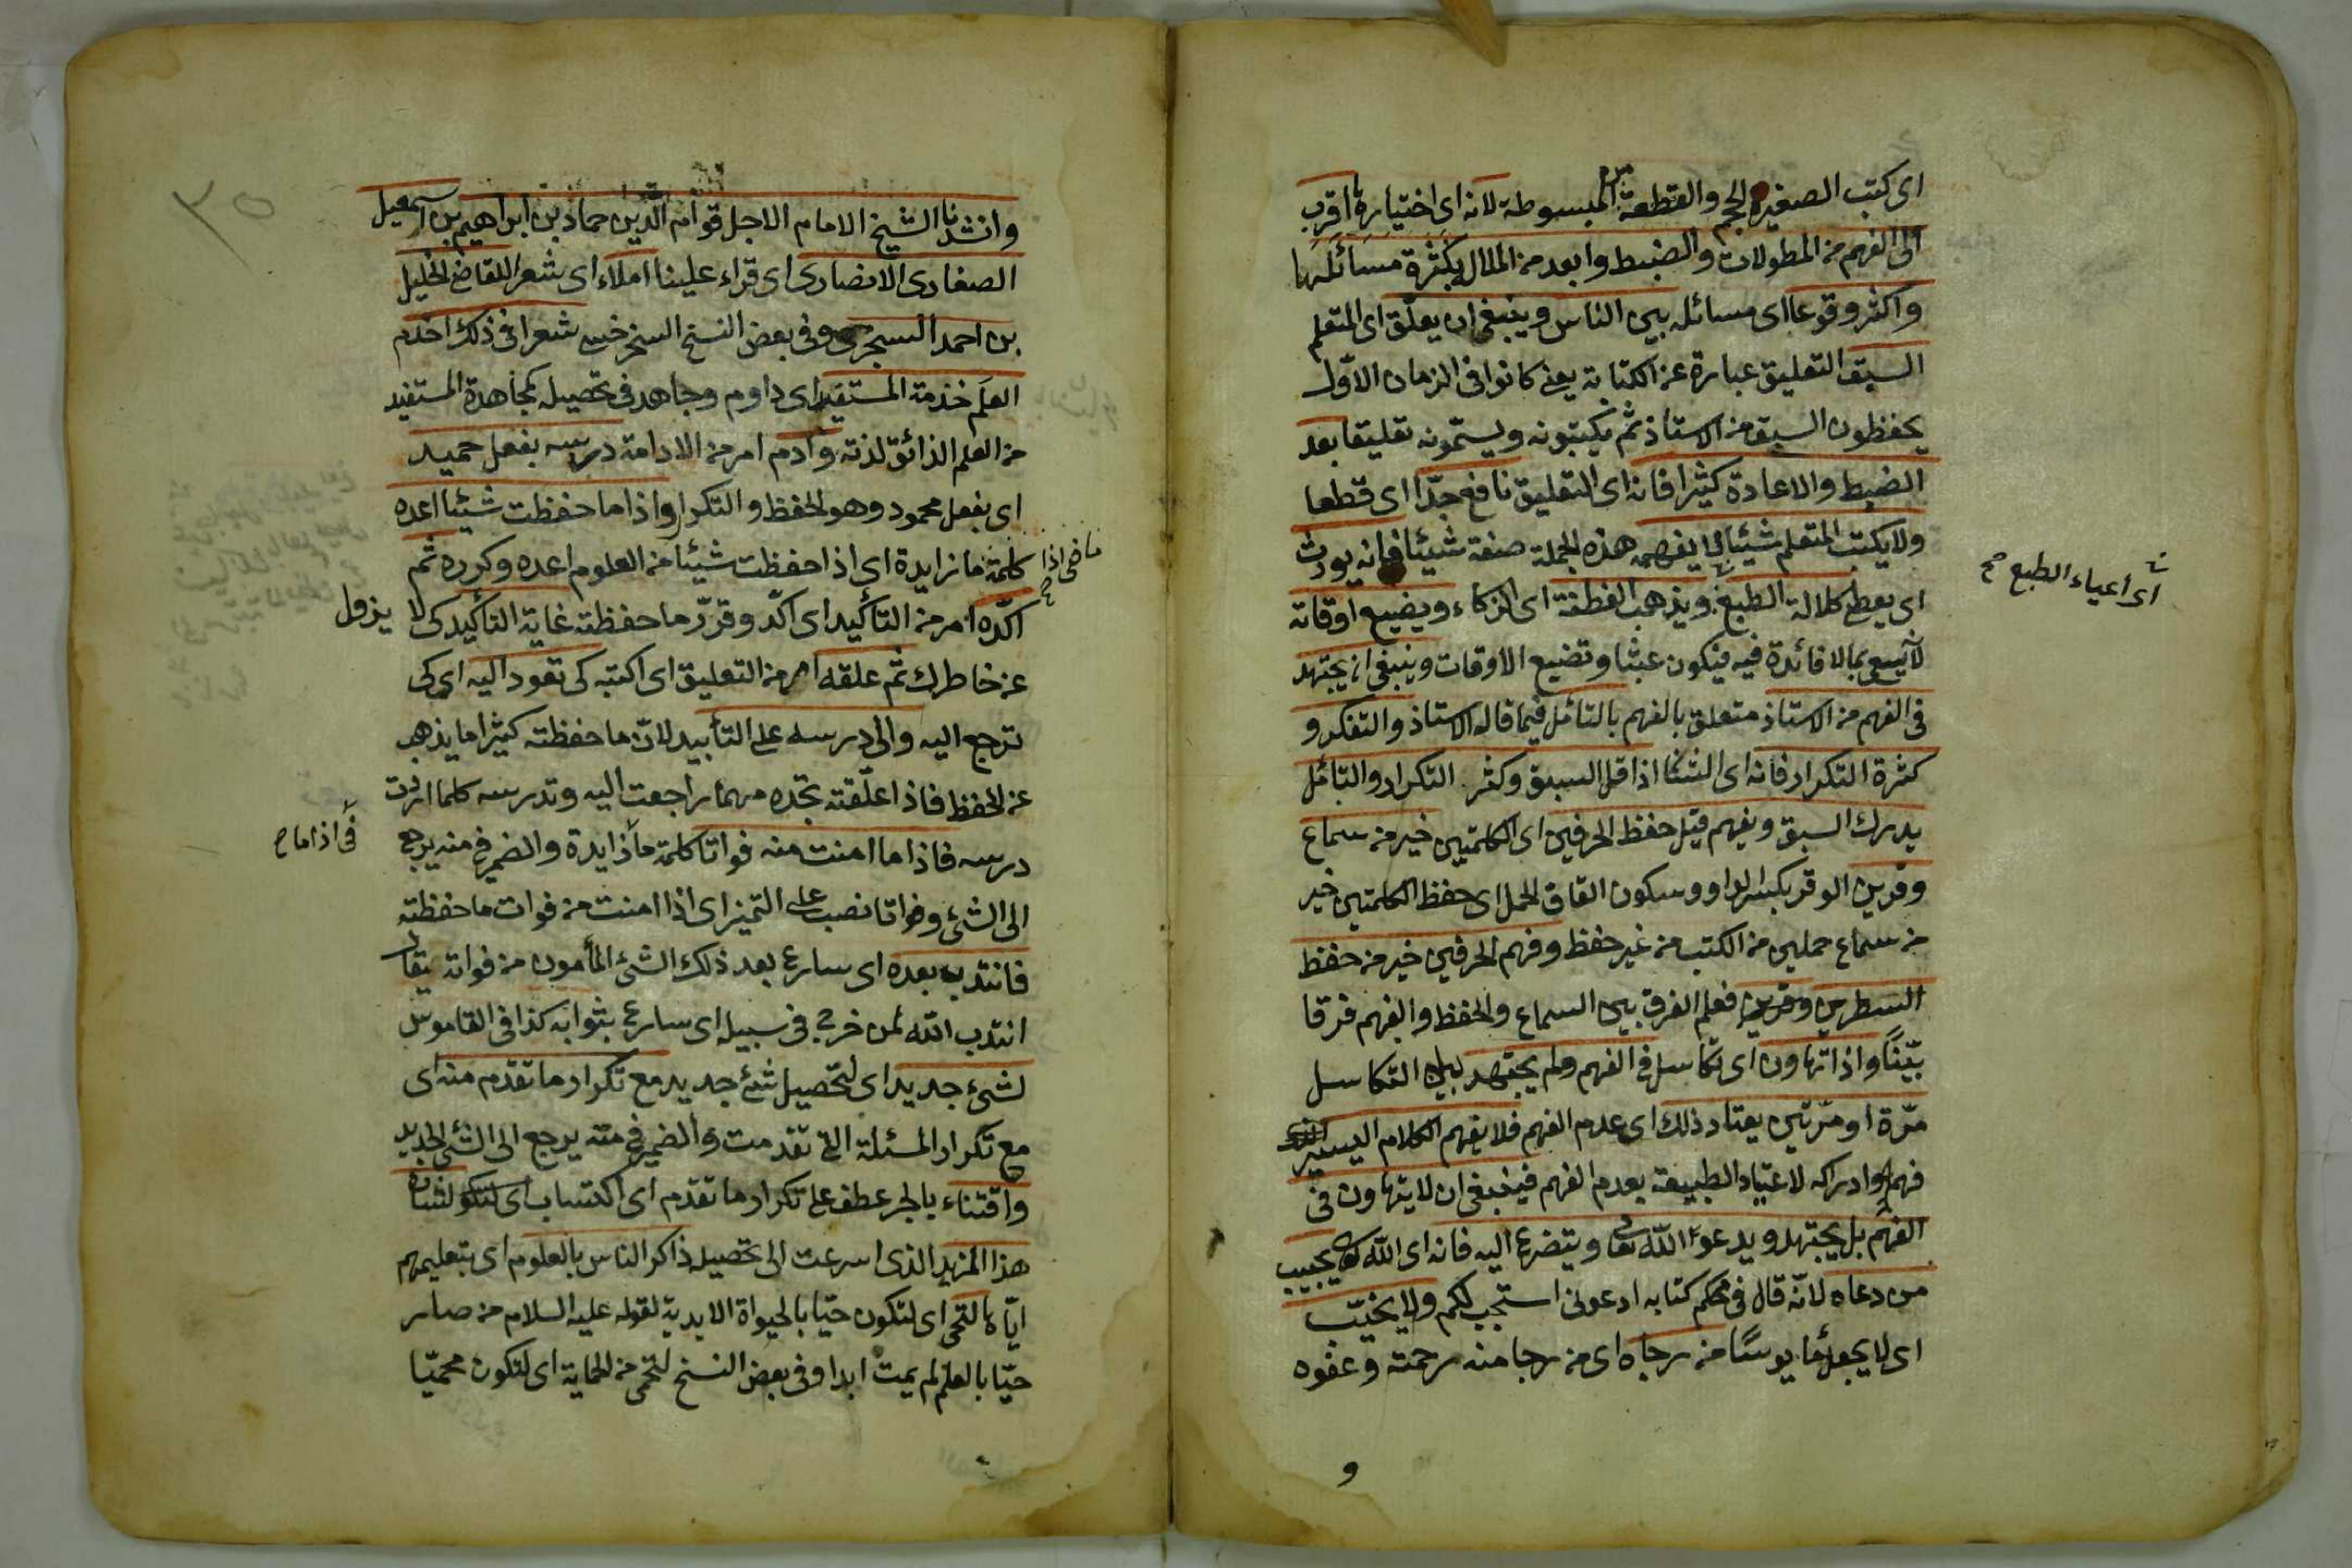 اى كتب الصغيرة الحجم والقطعة المبسوطة لانه اى اختياره اقرب
الى الفهم من المطولات والضبط وابعد من الملال بكثرة مسائلها
واكثر وقوعا اى مسائله بين الناس وينبغى ان يعلّق اى المتعلم
السبق التعليق عبارة عن الكتابة يعنى كانوا فى الزمان الاوّل
يحفظون السبق من الاستاذ ثم يكتبونه ويسمّونه تعليقا بعد
الضبط والاعادة كثيرا فانه اى التعليق نافع جدّا اى قطعا
ولا يكتب المتعلم شيئا لا يفهمه هذه الجملة صفة شيئا فانه يورث
اى يعطى كلالة الطبع ويذهب الفطنة اى الزكاء ويضيع اوقاته
اى اعياء الطبع صح
بما لا فائدة فيه فيكون عبثا وتضيع الاوقات وينبغى ان يجتهد
فى الفهم من الاستاذ متعلق بالفهم بالتأمل فيما قاله الاستاذ والتفكر و
كثرة التكرار فانه اى الشان اذا قل السبق وكثر التكرار والتأمل
يدرك السبق ويفهم قيل حفظ الحرفين اى الكلمتين خير من سماع
وقرين الوقر بكسر الواو وسكون القاف الحمل اى حفظ الكلمتين خير
من سماع حملين من الكتب من غير حفظ وفهم الحرفين خير من حفظ
السطرين وقرين فعلم الفرق بين السماع والحفظ والفهم فرقا
بيّنًا واذا تهاون اى تكاسل فى الفهم ولم يجتهد بل التكاسل
مرّة او مرّتين يعتاد ذلك اى عدم الفهم فلا يفهم الكلام اليسير
فهمه وادراكه لاعتياد الطبيعة بعدم الفهم فينبغى ان لا يتهاون فى
الفهم بل يجتهد ويدعو الله تعا ويتضرع اليه فانه اى الله تعا يجيب
من دعاه لانّه قال فى محكم كتابه ادعونى استجب لكم ولا يخيّب
اى لا يجعل مأيوسًا من رجاه اى من رجا منه رحمته وعفوه
و
٣٥
وانشدنا الشيخ الامام الاجل قوام الدين حماد بن ابراهيم بن اسمعيل
الصفارى الانصارى اى قراء علينا املاء اى شعرا للقاضى الخليل
بن احمد السجزى وفى بعض النسخ السرخسى شعرا فى ذلك اخدم
العلم خدمة المستفيد اى داوم وجاهد فى تحصيله كمجاهدة المستفيد
من العلم الذائق لذته وادم امر من الادامة درسه بفعل حميد
اى بفعل محمود وهو الحفظ والتكرار واذا ما حفظت شيئا اعده
كلمة ما زايدة اى اذا حفظت شيئا من العلوم اعده وكرره ثم
ما فى اذا
اكّده امر من التأكيد اى اكّد وقرّر ما حفظته غاية التأكيد كى لا يزول
عن خاطرك ثم علقه امر من التعليق اى اكتبه كى تعود اليه اى كى
ترجع اليه والى درسه على التأبيد لانّ ما حفظته كثيرا ما يذهب
عن الحفظ فاذا علّقته تجده مهما راجعت اليه وتدرسه كلما اردت
درسه فاذا ما امنت منه فواتا كلمة ما زايدة والضمير فى منه يرجع
فى اذا ما ح
الى الشئ وفواتا نصب على التميز اى اذا امنت من فوات ما حفظته
فانتدب بعده اى سارع بعد ذلك الشئ المأمون من فواته يقال
انتدب الله لمن خرج فى سبيله اى سارع بثوابه كذا فى القاموس
لشئ جديد اى لتحصيل شئ جديد مع تكرار ما تقدم منه اى
مع تكرار المسئلة التى تقدمت والضمير فى منه يرجع الى الشئ الجديد
واقتناء بالجر عطف على تكرار ما تقدّم اى اكتساب لشان
هذا المزيد الذى اسرعت الى تحصيله ذاكر الناس بالعلوم اى بتعليمهم
ايّاها لتحى اى لتكون حيّا بالحيوة الابدية لقوله عليه السلام من صار
حيّا بالعلم لم يمت ابدا وفى بعض النسخ لتحمى من الحماية اى لتكون محميّا